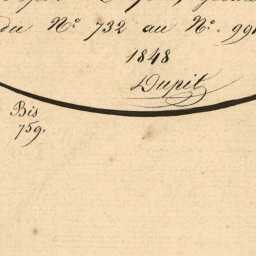 du N° 732 au N°. 99
1848
Dupit
Bis
759.